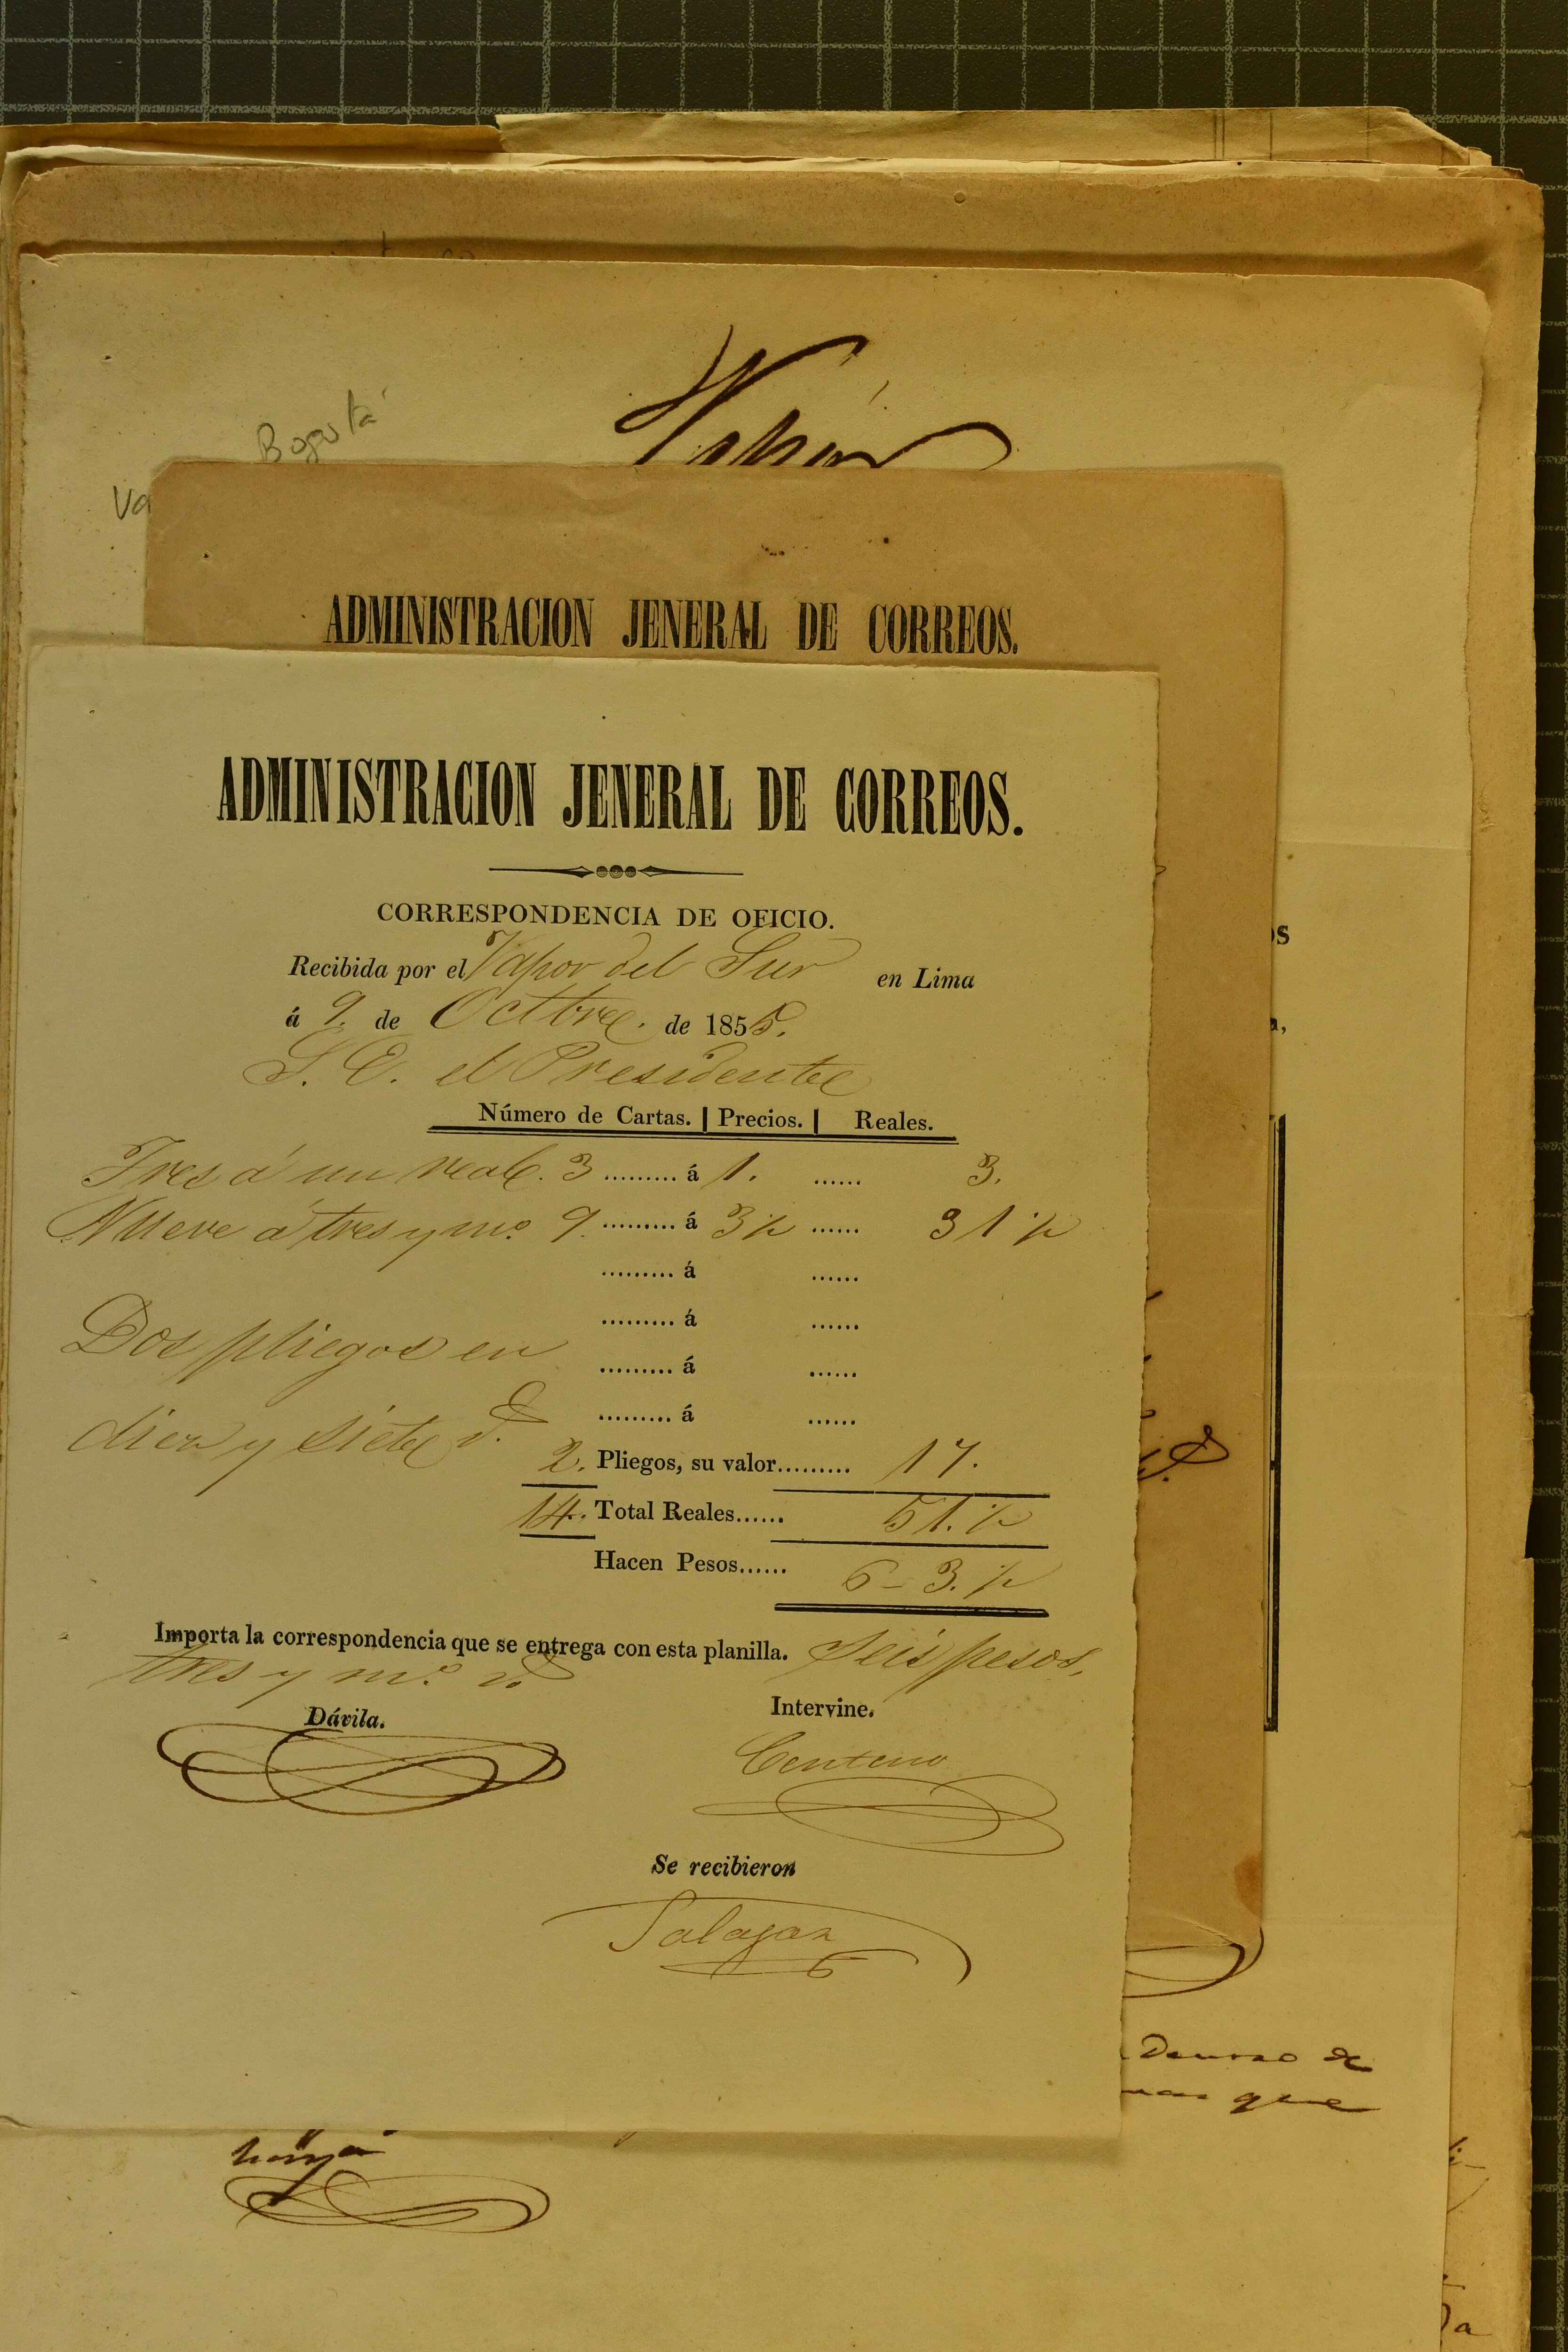 Bogotá
Va
ADMINISTRACION JENERAL DE CORREOS.
ADMINISTRACION JENERAL DE CORREOS.
CORRESPONDENCIA DE OFICIO.
Recibida por el Vapor del Sur en Lima
á 9. de Octbre. de 1855.
S. E. el Presidente
Número de Cartas. | Precios. | Reales.
Tres á un real. 3 ......... á 1. ...... 3.
Nueve á tres y mo. 9. ......... á 3 1/2 ...... 31 1/2
......... á ......
......... á ......
Dos pliegos en ......... á ......
......... á ......
diez y siete r.
2. Pliegos, su valor......... 17.
14. Total Reales...... 51. 1/2
Hacen Pesos...... 6 - 3. 1/2
Importa la correspondencia que se entrega con esta planilla. Seis pesos,
tres y mo. r.
Dávila. Intervine.
Centeno
Se recibieron
Salazar
que